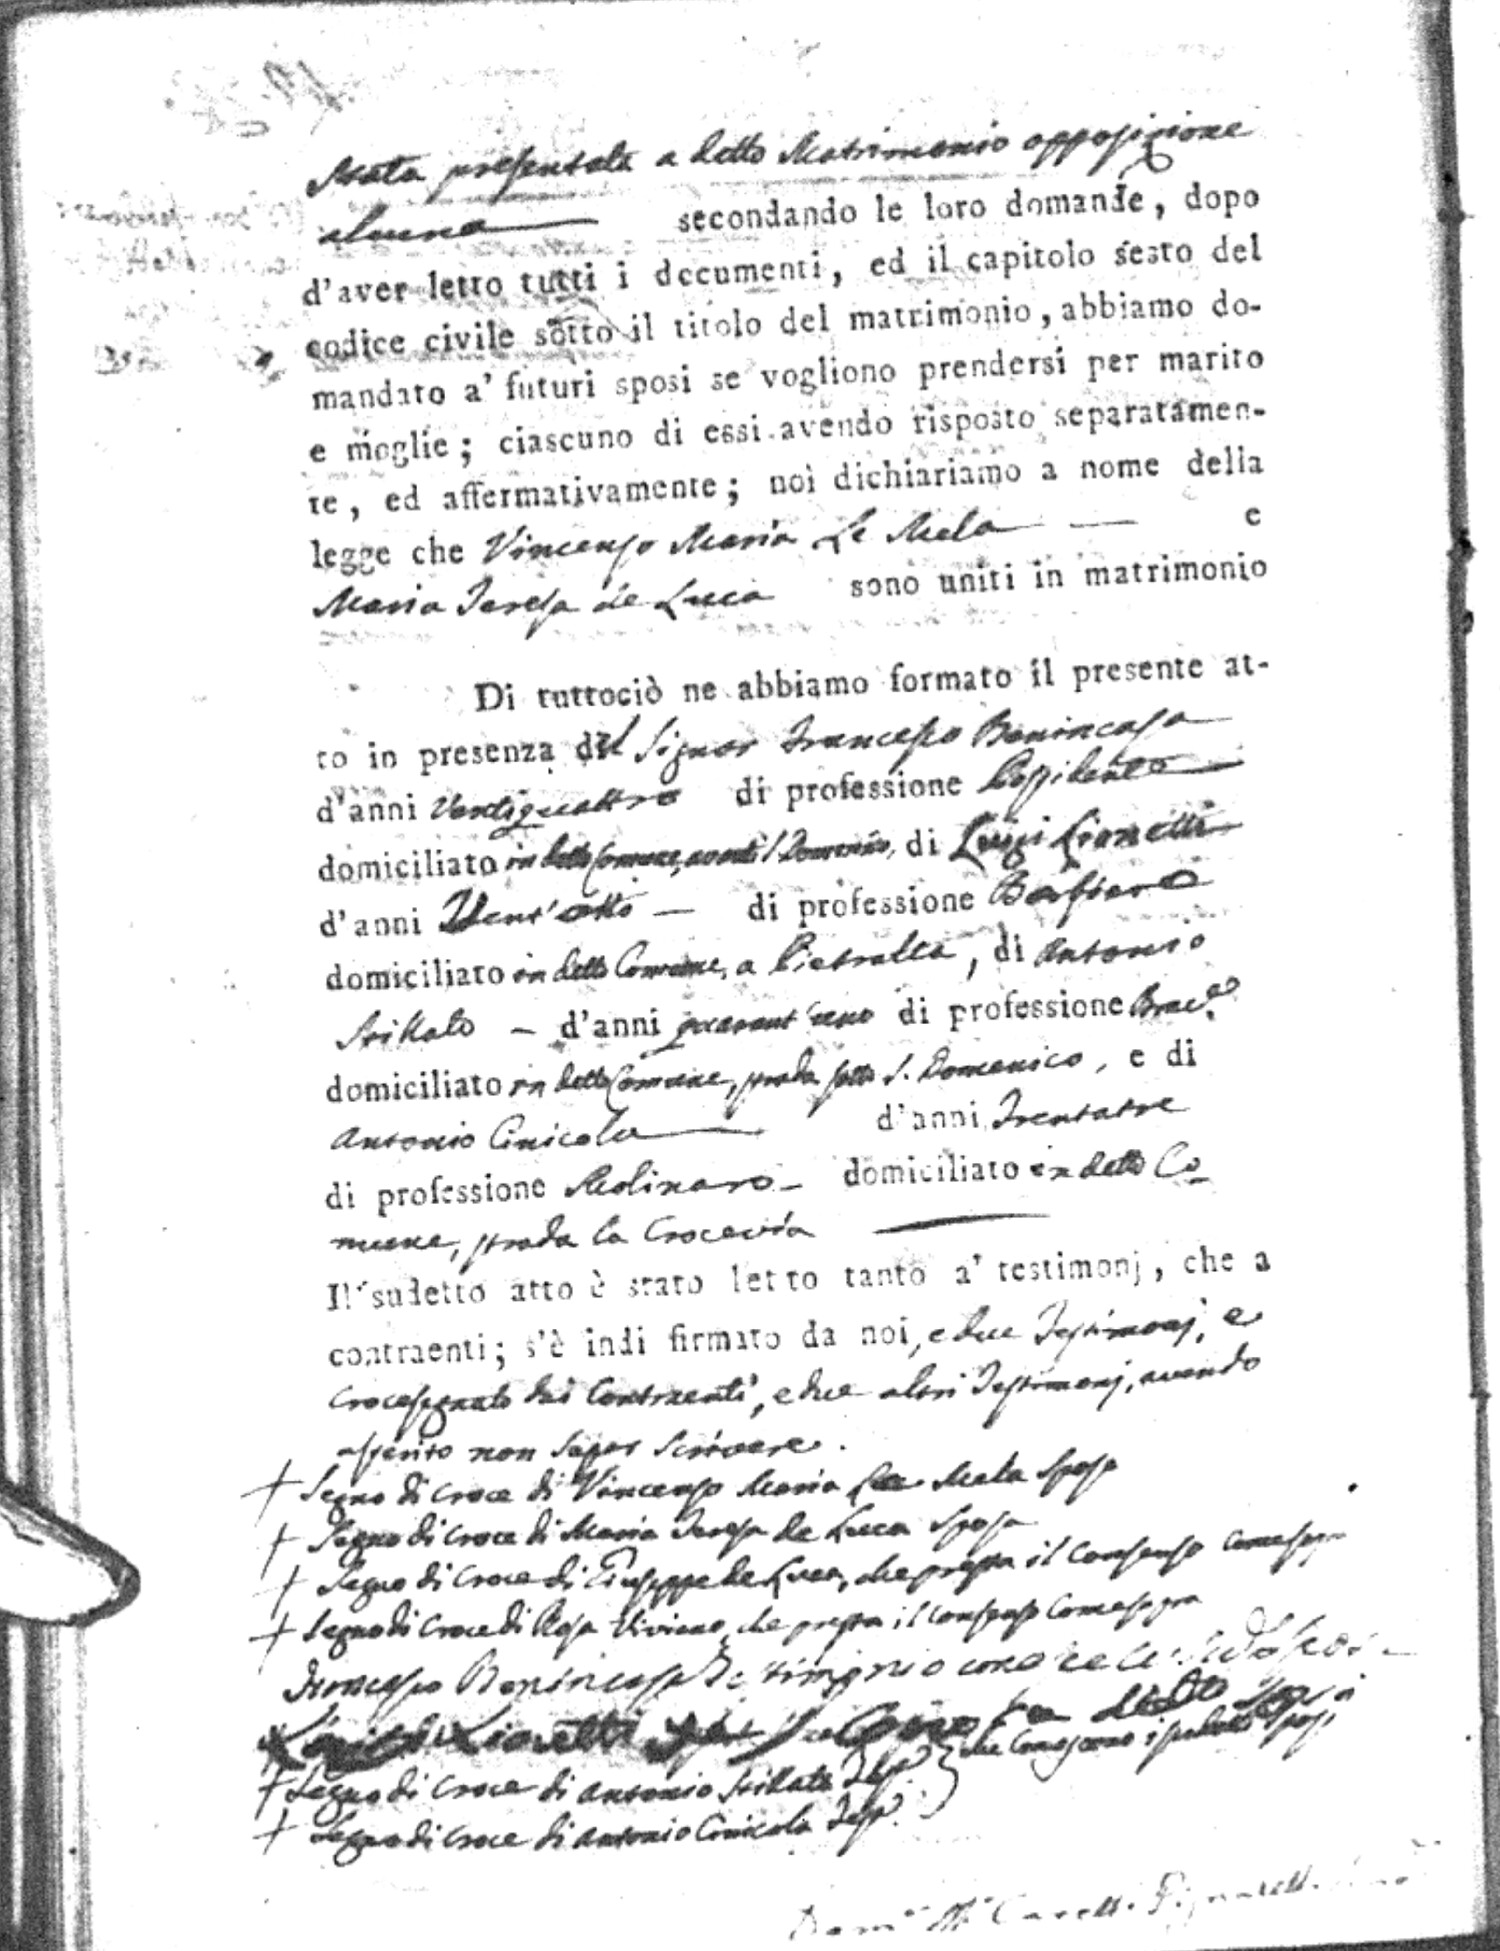 stata presentata a detto Matrimonio opposizione
alcuna secondando le loro domande, dopo
d'aver letto tutti i documenti, ed il capitolo sesto del
codice civile sotto il titolo del matrimonio, abbiamo do-
mandato a' futuri sposi se vogliono prendersi per marito
e moglie; ciascuno di essi avendo risposto separatamen-
te, ed affermativamente; noi dichiariamo a nome della
legge che Vincenzo Maria Le Mela — e
Maria Teresa de Luca sono uniti in matrimonio
Di tuttociò ne abbiamo formato il presente at-
to in presenza del Signor Francesco Benincasa
d'anni Ventiquattro di professione Possidente
domiciliato in detto Comune, avanti S. Domenico, di Luigi Lionetti
d'anni Vent'otto — di professione Barbiero
domiciliato in detto Comune, a Pietralta, di Antonio
Stillato – d'anni quarant'uno di professione Brac.e
domiciliato in detto Comune, strada sotto S. Domenico, e di
Antonio Cinicola d'anni Trentatre
di professione Molinaro – domiciliato in detto Co-
mune, strada la Crocevia
Il sudetto atto è stato letto tanto a' testimonj, che a
contraenti; s'è indi firmato da noi, e due Testimonj, e
Crocesegnato dai Contraenti, e due altri Testimonj, avendo
asserito non saper scrivere.
+ Segno di Croce di Vincenzo Maria Le Mela Sposo
+ Segno di Croce di Maria Teresa de Luca Sposa
+ Segno di Croce di Giuseppe de Luca, che presta il Consenso come sopra
+ Segno di Croce di Rosa Viviano, che presta il Consenso Come sopra
Francesco Benincasa Testimonio conosce li
Luigi Lionetti
+ Segno di Croce di Antonio Stillato Test.o } che Conoscono i sudetti Sposi
+ Segno di Croce di Antonio Cinicola Test.o
Dom.o M.a Pignatelli